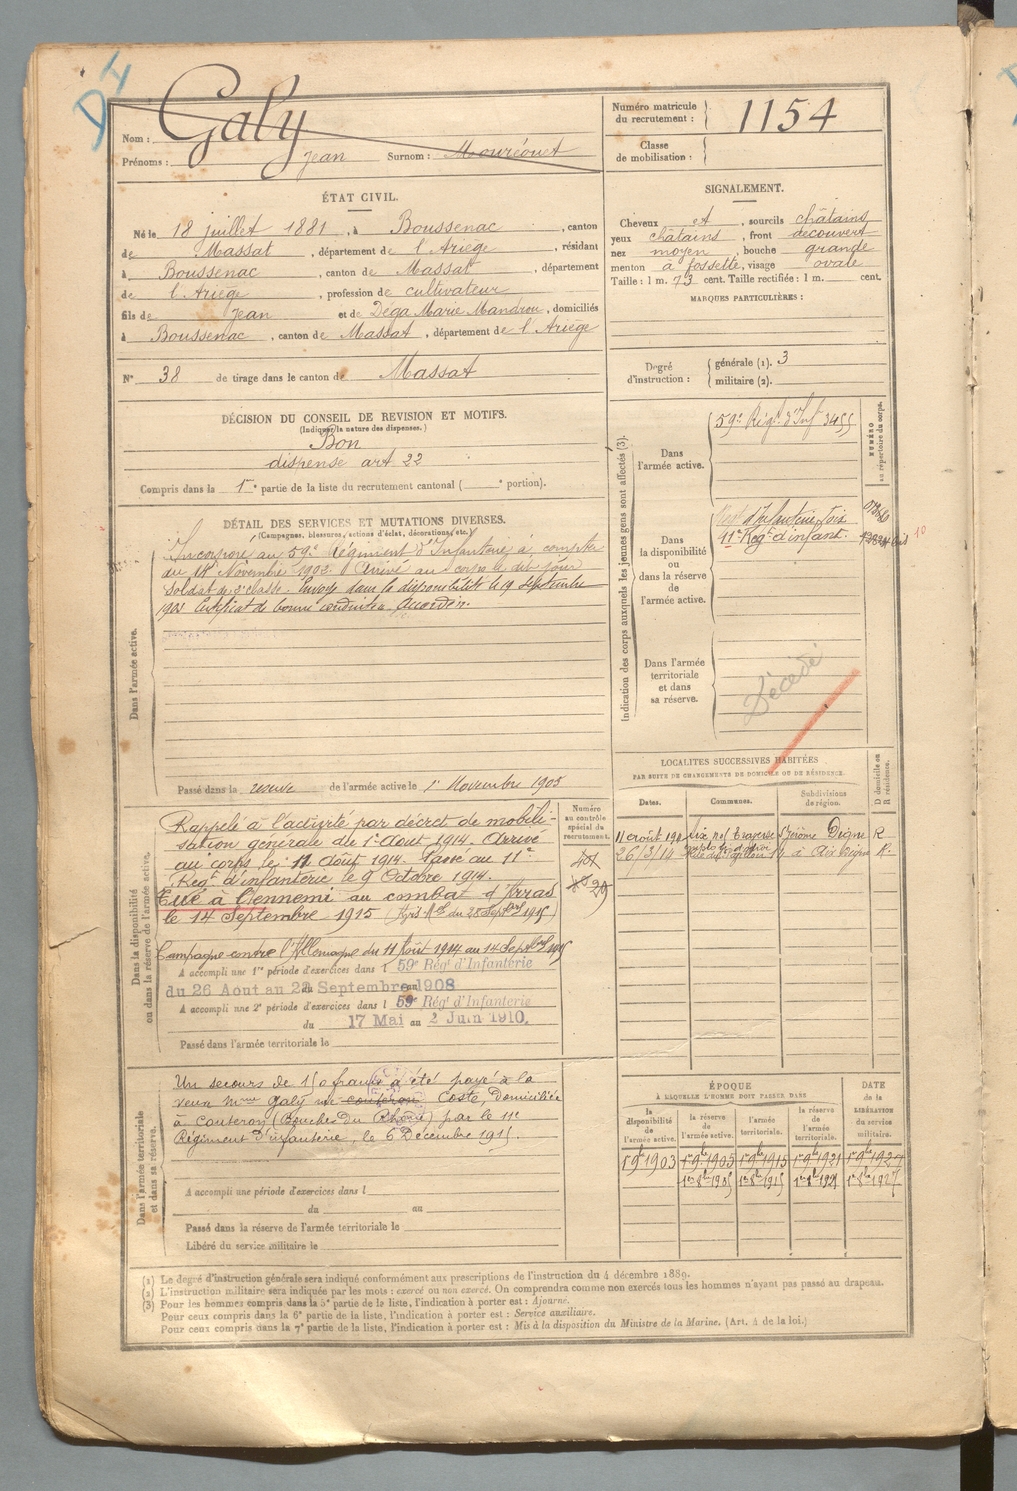 D4
Nom : Galy
Prénoms : Jean Surnom : Mouréouet
Numéro matricule du recrutement : 1154
Classe de mobilisation :
ÉTAT CIVIL.
Né le 18 juillet 1881, à Boussenac, canton
de Massat, département de l'Ariège, résidant
à Boussenac, canton de Massat, département
de l'Ariège, profession de cultivateur
fils de Jean et de Déga Marie Mandrou, domiciliés
à Boussenac, canton de Massat, département de l'Ariège
N° 38 de tirage dans le canton de Massat
SIGNALEMENT.
Cheveux et, sourcils châtains
yeux châtains, front découvert
nez moyen, bouche grande
menton à fossette, visage ovale
Taille : 1 m. 73 cent. Taille rectifiée : 1 m. cent.
MARQUES PARTICULIÈRES :
Degré d'instruction : générale (1). 3
militaire (2).
DÉCISION DU CONSEIL DE REVISION ET MOTIFS.
(Indiquer la nature des dispenses.)
Bon
dispense art 22
Compris dans la 1re partie de la liste du recrutement cantonal ( e portion).
DÉTAIL DES SERVICES ET MUTATIONS DIVERSES.
(Campagnes, blessures, actions d'éclat, décorations, etc.)
Dans l'armée active.
Incorporé au 59e Régiment d'Infanterie à compter
du 14 Novembre 1902. Arrivé au corps le dit jour
soldat de 2e classe. Envoyé dans la disponibilité le 19 septembre
1903 Certificat de bonne conduite Accordé.
Passé dans la réserve de l'armée active le 1er Novembre 1905
Indication des corps auxquels les jeunes gens sont affectés (3).
NUMÉRO au répertoire du corps.
Dans l'armée active.
59e Régt d'Inf 3455
Dans la disponibilité ou dans la réserve de l'armée active.
Régt d'Infanterie Foix
11e Régt d'infant.
10
Dans l'armée territoriale et dans sa réserve.
Décédé
LOCALITÉS SUCCESSIVES HABITÉES
PAR SUITE DE CHANGEMENTS DE DOMICILE OU DE RÉSIDENCE.
Dates. Communes. Subdivisions de région. D domicile ou R résidence.
11 Août 190 Aix nel traverse St Jérôme Digne R
26/3/14 à Aix Digne R.
Dans la disponibilité ou dans la réserve de l'armée active.
Numéro au contrôle spécial du recrutement.
29
Rappelé à l'activité par décret de mobili-
sation générale du 1er Août 1914. Arrivé
au corps le 11 Août 1914. Passé au 11e
Régt d'infanterie le 9 Octobre 1914.
Tué à l'ennemi au combat d'Arras
le 14 Septembre 1915 (Avis Mel du 28 Septbre 1915)
Campagne contre l'Allemagne du 11 Août 1914 au 14 Septbre 1915
A accompli une 1re période d'exercices dans l 59e Rég' d'Infanterie
du 26 Aout au 22 Septembre 1908
A accompli une 2e période d'exercices dans l 59e Rég' d'Infanterie
du 17 Mai au 2 Juin 1910.
Passé dans l'armée territoriale le
Dans l'armée territoriale et dans sa réserve.
Un secours de 150 francs a été payé à la
veuve Mme Galy née Couteron Coste, domiciliée
à Couteron (Bouches du Rhône) par le 11e
Régiment d'infanterie, le 6 Décembre 1915.
A accompli une période d'exercices dans l
du au
Passé dans la réserve de l'armée territoriale le
Libéré du service militaire le
ÉPOQUE
À LAQUELLE L'HOMME DOIT PASSER DANS
DATE de la LIBÉRATION du service militaire.
la disponibilité de l'armée active. la réserve de l'armée active. l'armée territoriale. la réserve de l'armée territoriale.
1er 9bre 1903 1er 9bre 1905 1er 9bre 1915 1er 9bre 1921 1er 9bre 1927
1er 8bre 1905 1er 8bre 1915 1er 8bre 1921 1er 8bre 1927
(1) Le degré d'instruction générale sera indiqué conformément aux prescriptions de l'instruction du 4 décembre 1889.
(2) L'instruction militaire sera indiquée par les mots : exercé ou non exercé. On comprendra comme non exercés tous les hommes n'ayant pas passé au drapeau.
(3) Pour les hommes compris dans la 5e partie de la liste, l'indication à porter est : Ajourné.
Pour ceux compris dans la 6e partie de la liste, l'indication à porter est : Service auxiliaire.
Pour ceux compris dans la 7e partie de la liste, l'indication à porter est : Mis à la disposition du Ministre de la Marine. (Art. 4 de la loi.)